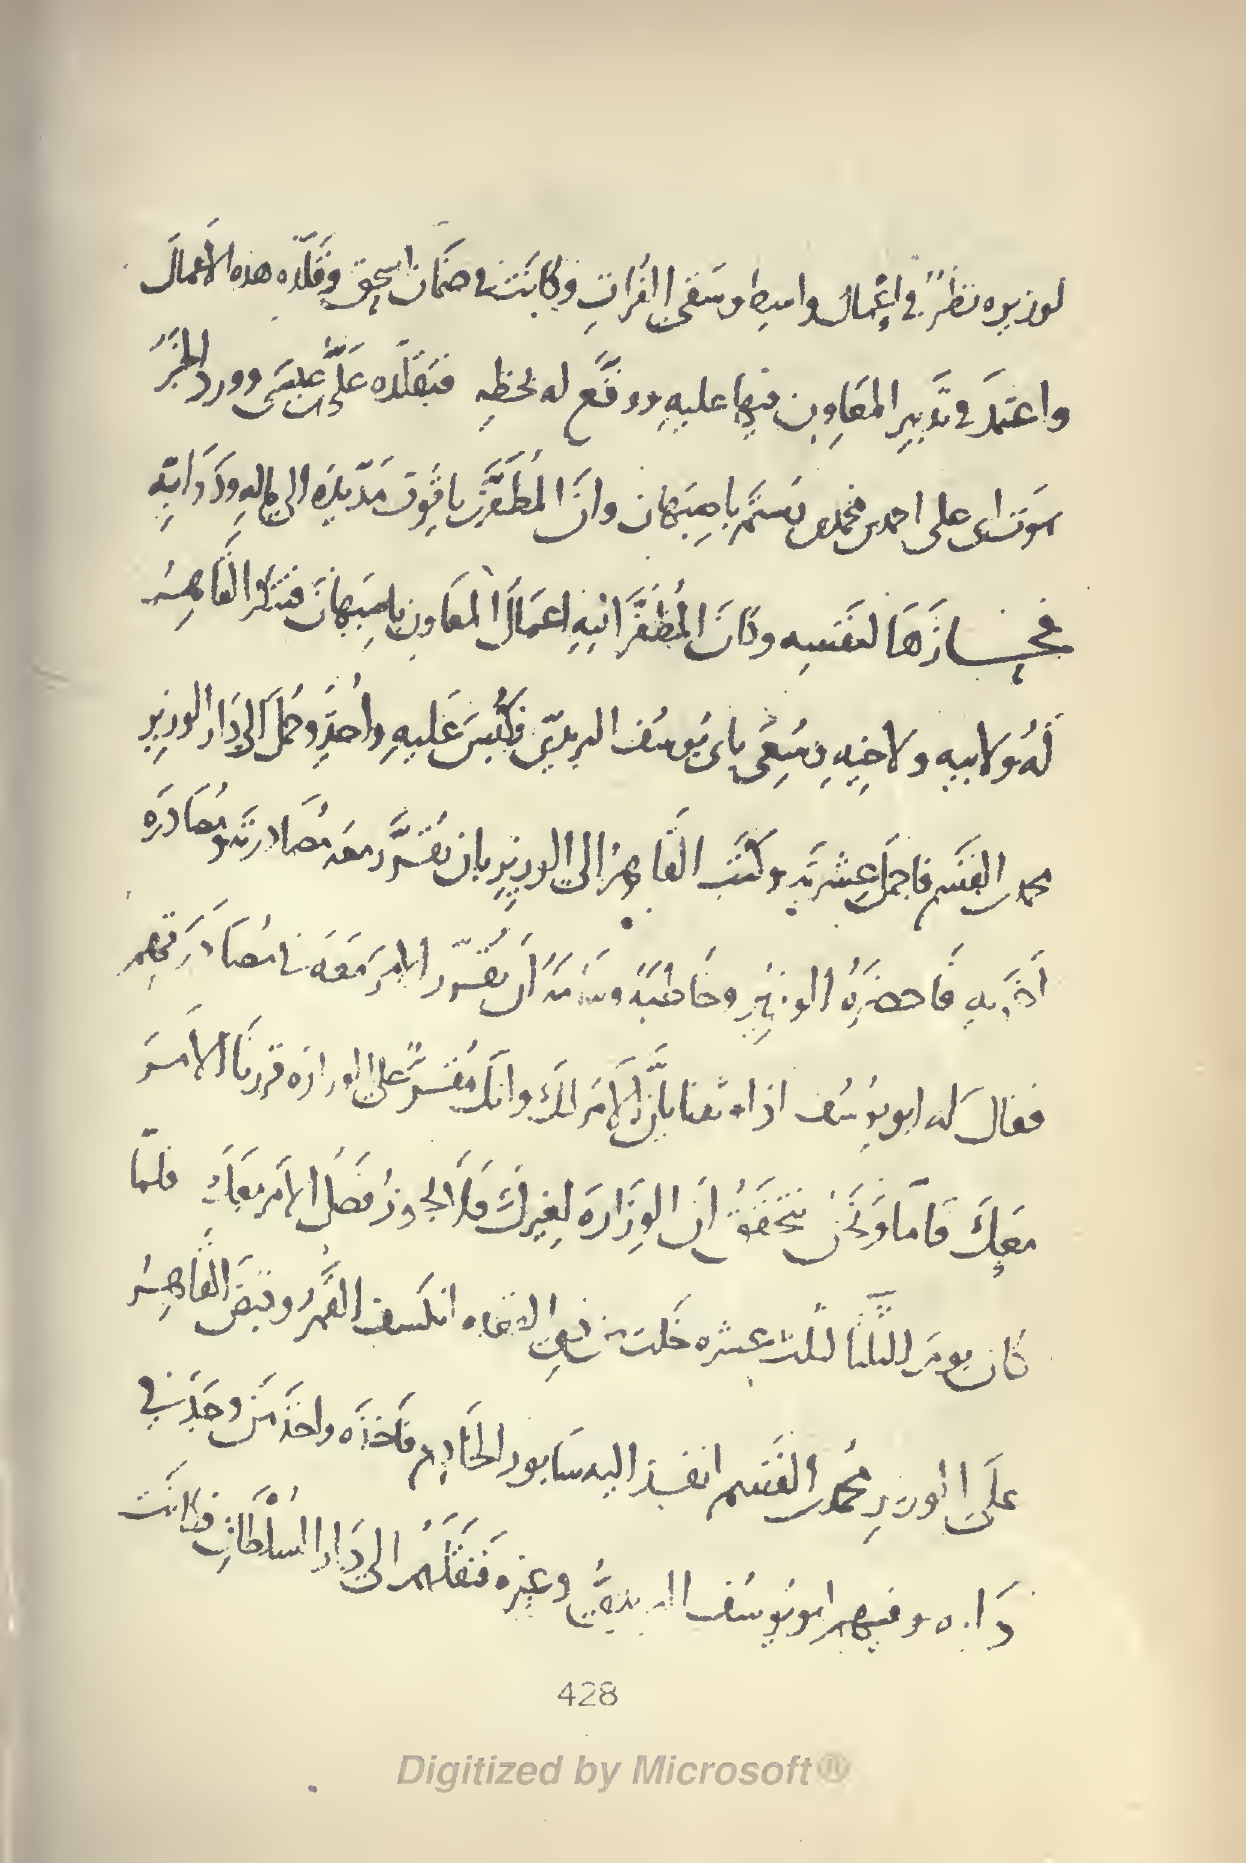 لوزيره نظر في اعمال واسط وسقى الفرات وكانت في ضمان اسحق وقلّده هذه الاعمال
واعتمد في تدبير المعاون فيها عليه ووقّع له بخطه فتقلّده علىّ بن عيسى وورد الخبر
بموت ابى على احمد بن محمد بن رستم باصبهان وانّ المظفّر بن ياقوت مدّ يده الى ماله ودوابّه
فحازها لنفسه وكان المظفّر اليه اعمال المعاون باصبهان فتنكّر القاهر
له ولابيه ولاخيه وسعى بابى يوسف البريدىّ فكُبس عليه واُخذ وحُمل الى دار الوزير
محمد بن القسم فاجمل عشرته وكتب القاهر الى الوزير بان يقرّر معه مصادرته ومصادرة
اخويه فاحضره الوزير وخاطبه وسامه ان يقرّر الامر معه في مصادرتهم
فقال له ابو يوسف اذا وثقنا بانّ الامر لك وانك مقرّ على الوزارة قررنا الامر
معك فاما ونحن نتحقق ان الوزارة لغيرك فلا يجوز فصل الامر معك فلمّا
كان يوم الثلثا لثلث عشره خلت من ذى القعده انكسف القمر وقبض القاهر
على الوزير محمد بن القسم انفذ اليه سابور الخادم فاخذه واخذ من وجد في
داره وفيهم ابو يوسف البريدىّ وغيره فنقلهم الى دار السلطان فكانت
428
Digitized by Microsoft®